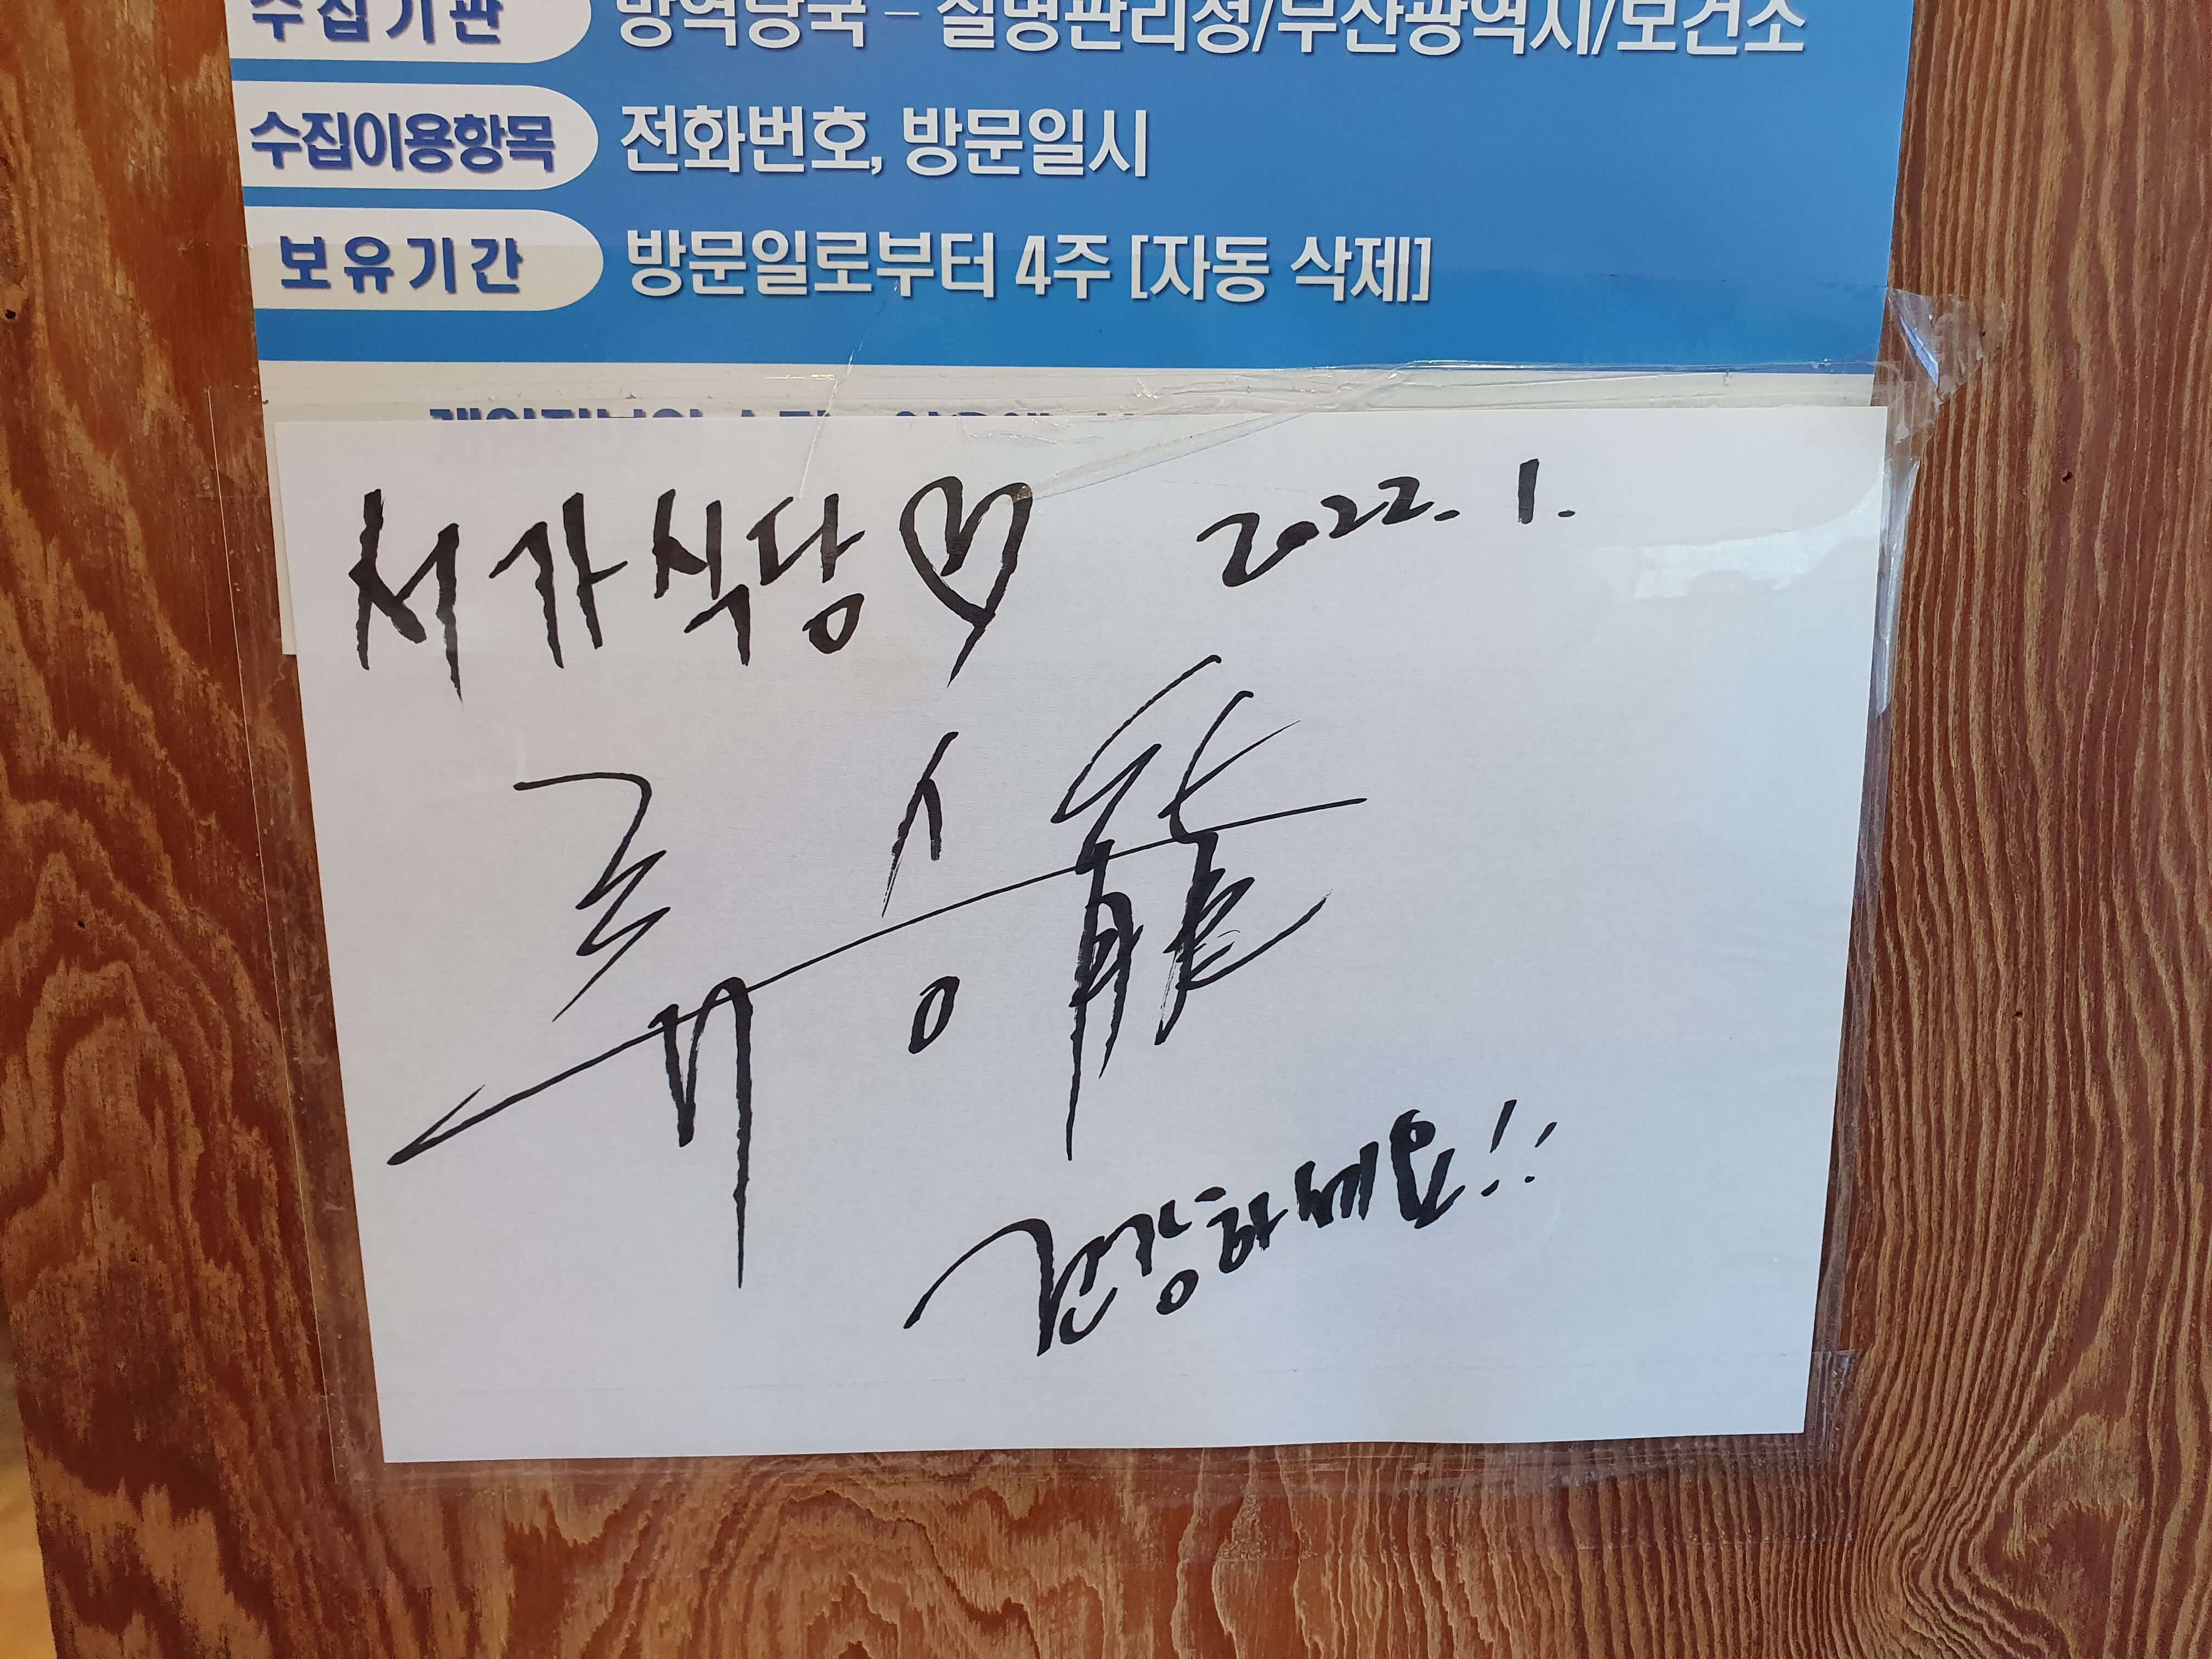 수집기관 방역당국 - 질병관리청/부산광역시/보건소
수집이용항목 전화번호, 방문일시
보유기간 방문일로부터 4주 [자동 삭제]
서가식당♡ 2022. 1.
류승龍
건강하세요!!